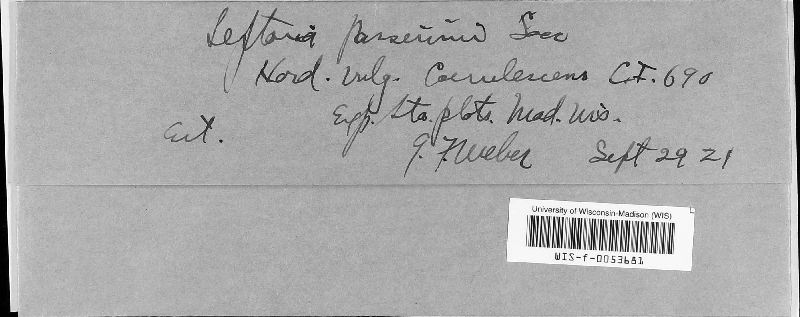 Septoria passerinii Sacc
Hord. vulg. Coerulescens C.I. 690
Exp. Sta. plots. Mad. Wis.
Ext.
G. F. Weber Sept 29 21
University of Wisconsin-Madison (WIS)
WIS-f-0053681